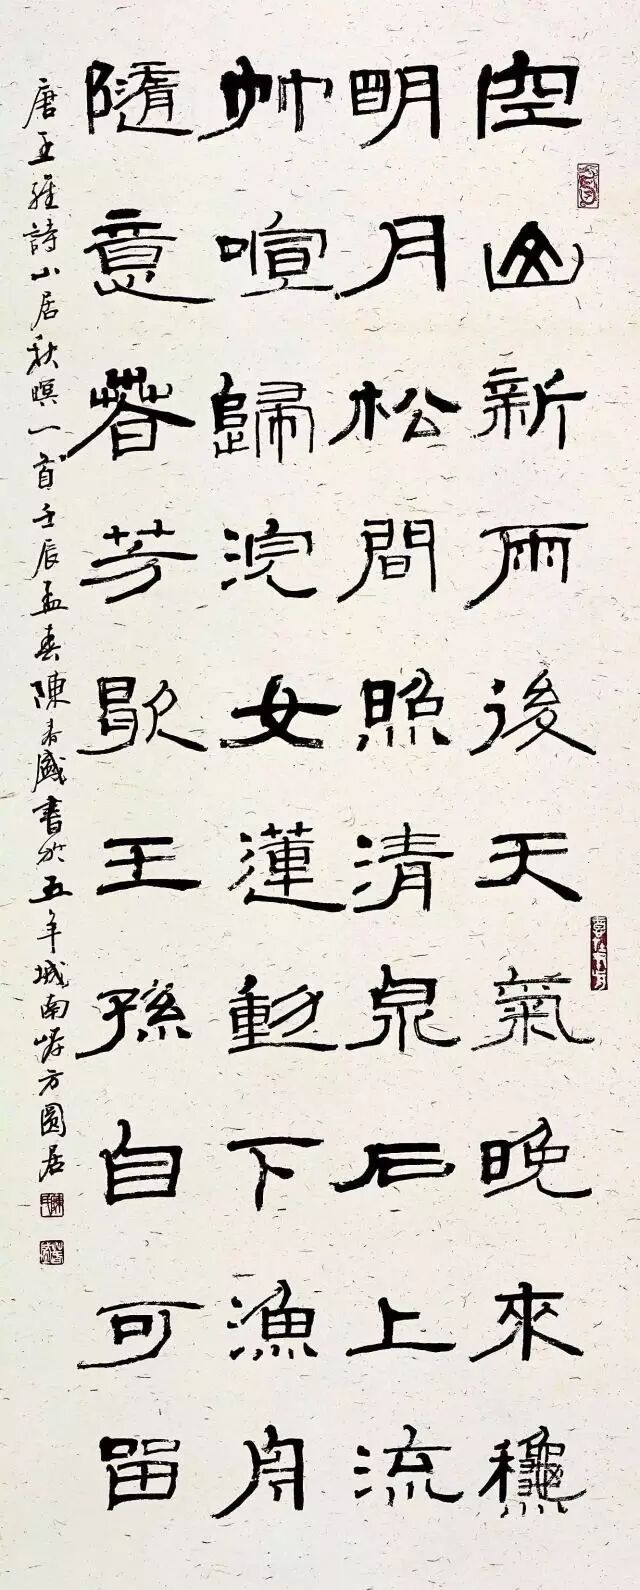 空山新雨後天氣晚來龝
明月松間照清泉石上流
竹喧歸浣女蓮動下漁舟
隨意春芳歇王孫自可留
唐王維詩山居秋暝一首壬辰孟春陳盛書於五羊城南岸方圓居